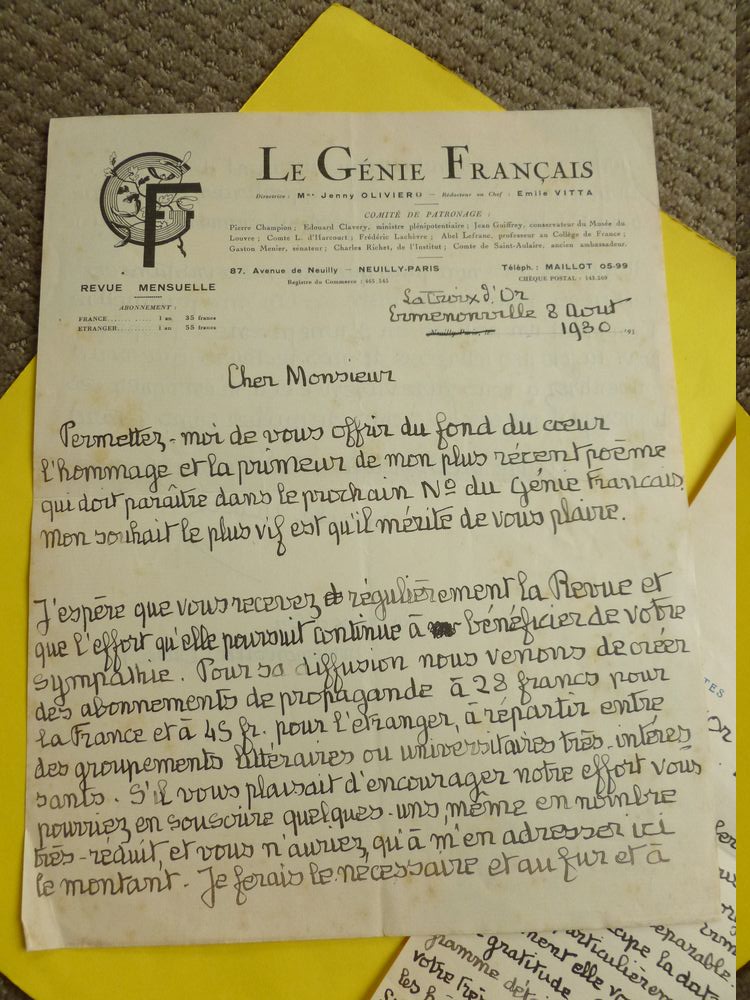 GF
LE GÉNIE FRANÇAIS
Directrice : Mme Jenny OLIVIERO — Rédacteur en Chef : Emile VITTA
COMITÉ DE PATRONAGE :
Pierre Champion ; Edouard Clavery, ministre plénipotentiaire ; Jean Guiffrey, conservateur du Musée du
Louvre ; Comte L. d'Harcourt ; Frédéric Lachèvre ; Abel Lefranc, professeur au Collège de France ;
Gaston Menier, sénateur ; Charles Richet, de l'Institut ; Comte de Saint-Aulaire, ancien ambassadeur.
87, Avenue de Neuilly — NEUILLY-PARIS
Téléph. : MAILLOT 05-99
Registre du Commerce : 465.545
CHÈQUE POSTAL : 145.269
REVUE MENSUELLE
ABONNEMENT :
FRANCE........... 1 an 35 francs
ETRANGER........ 1 an 55 francs
La Croix d'Or
Ermenonville 8 Aout
Neuilly-Paris, le 1930 193
Cher Monsieur
Permettez-moi de vous offrir du fond du cœur
l'hommage et la primeur de mon plus récent poème
qui doit paraître dans le prochain No du Génie Français.
Mon souhait le plus vif est qu'il mérite de vous plaire.
J'espère que vous recevez régulièrement la Revue et
que l'effort qu'elle poursuit continue à bénéficier de votre
sympathie. Pour sa diffusion nous venons de créer
des abonnements de propagande à 28 francs pour
la France et à 45 fr. pour l'etranger, à répartir entre
des groupements littéraires ou universitaires très-intéres
sants. S'il vous plaisait d'encourager notre effort vous
pourriez en souscrire quelques-uns, même en nombre
très-réduit, et vous n'auriez qu'à m'en adresser ici
le montant. Je ferais le nécessaire et au fur et à
TES
Or
eparable
cipe la date
particulièrem
ment elle vo
gratitude
gramme dét
votre Trè
les h